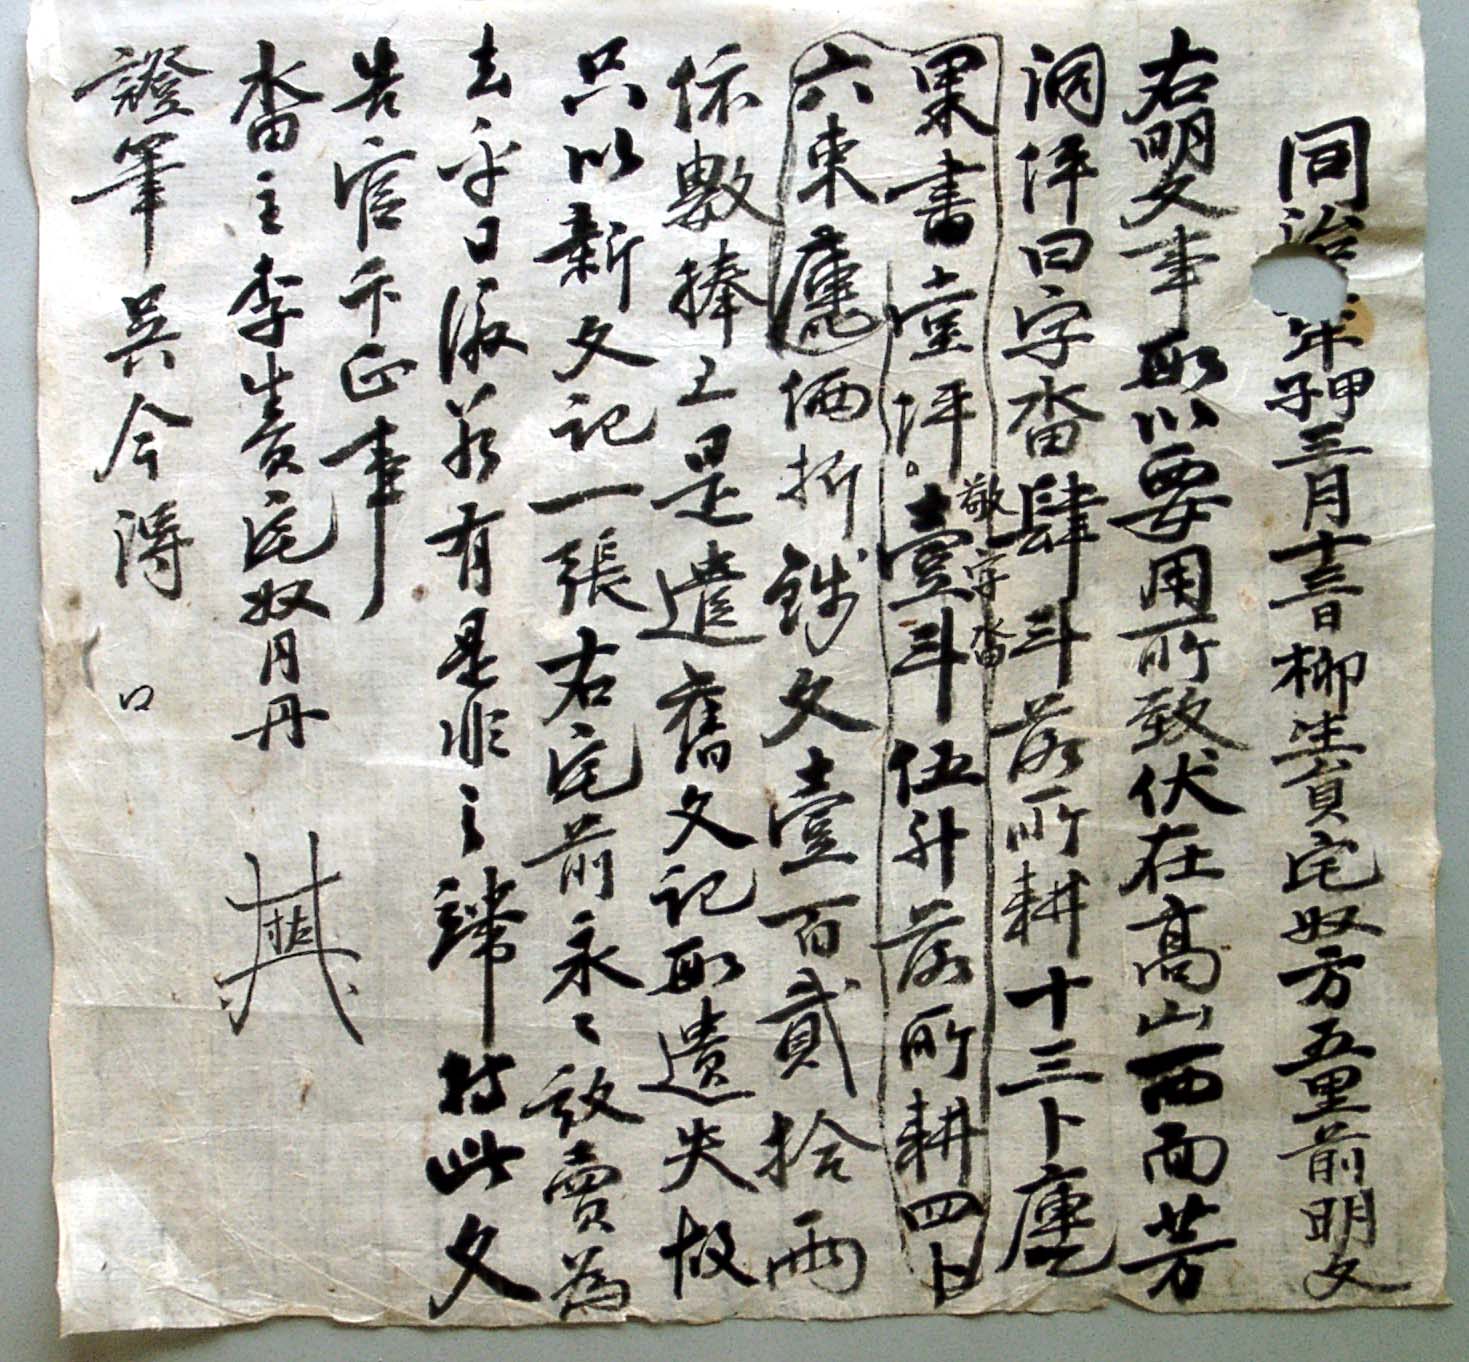 同治年甲子三月十三日柳生員宅奴方五里前明文
右明文事段以要用所致伏在高山西面芳
洞坪日字畓肆斗落所耕十三卜廤
果書堂坪敬字畓壹斗伍升落所耕四卜
六束廤価折錢文壹百貳拾兩
依數捧上是遣舊文記段遺失故
只以新文記一張右宅前永〻放賣爲
去乎日後若有是非之端持此文
告官卞正事
畓主李生員宅奴月丹
證筆吳今得